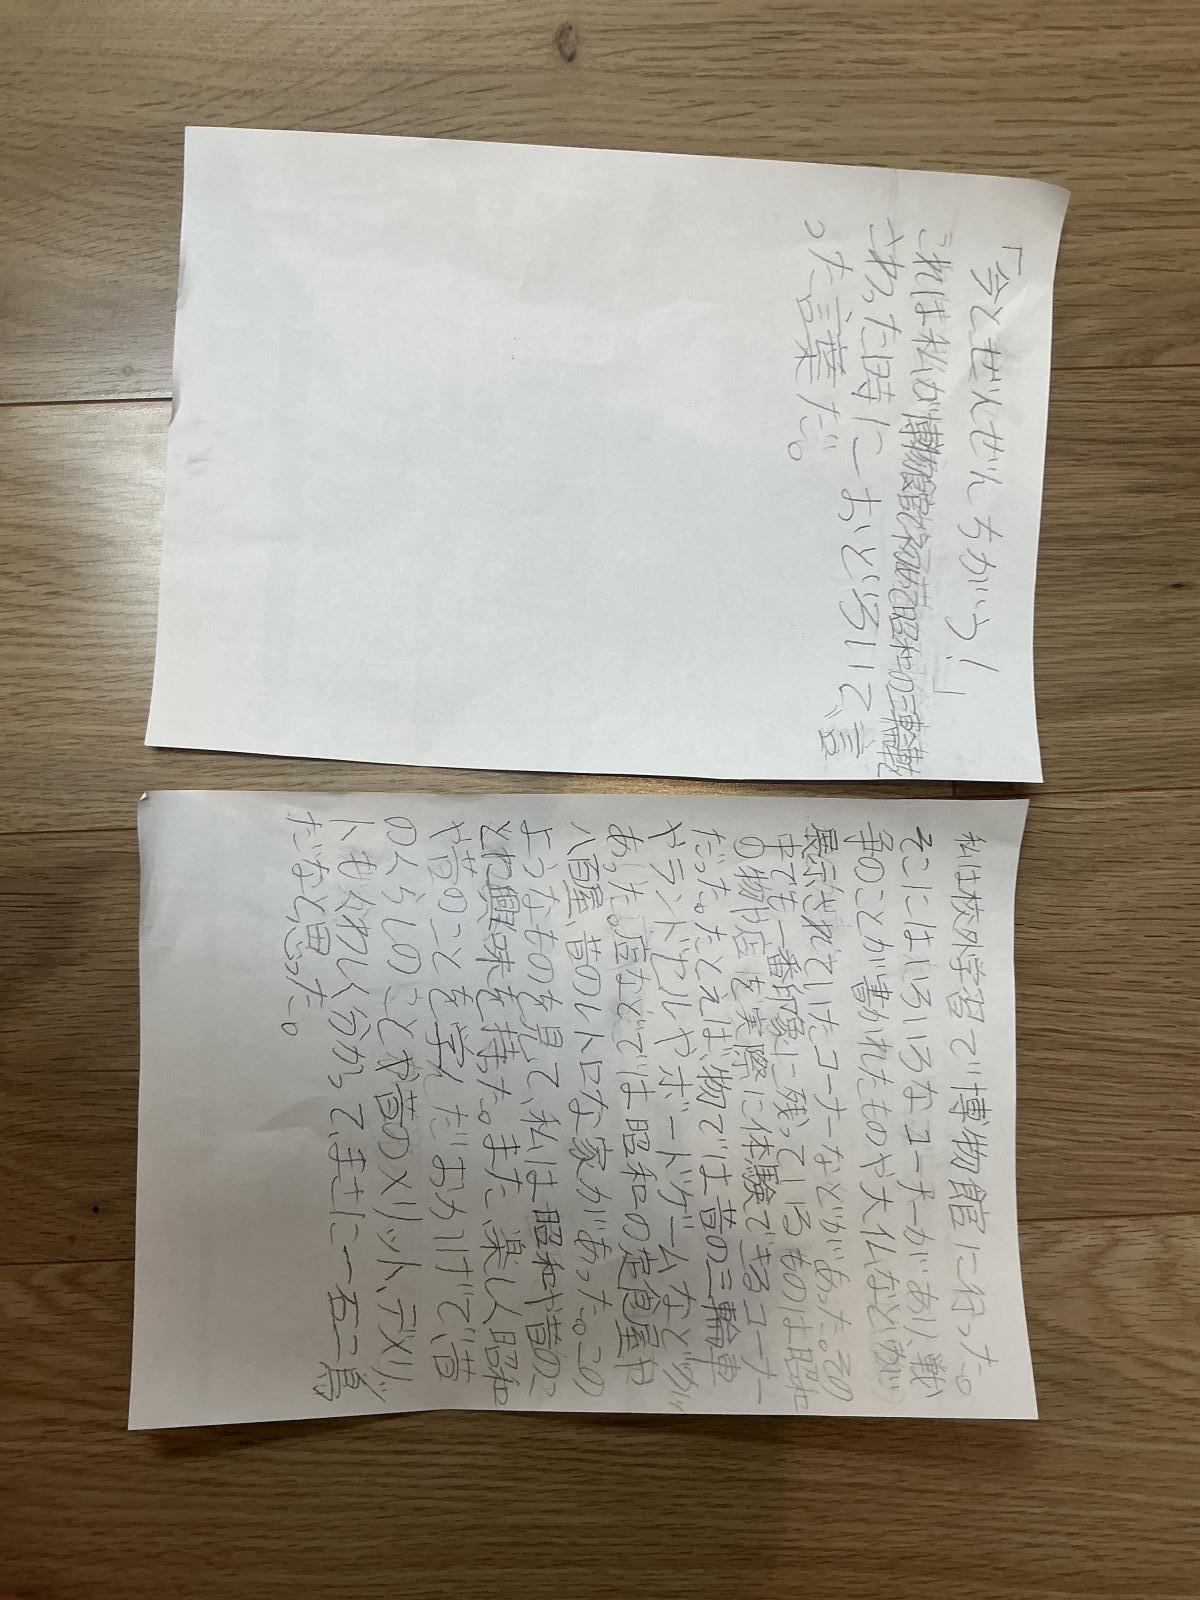 「今とぜんぜんちがう！」
これは私が博物館で初めて昭和の三輪車を
さわった時におどろいて言
った言葉だ。
私は校外学習で博物館に行った。
そこにはいろいろなコーナーがあり、戦
争のことが書かれたものや大仏などが
展示されていたコーナーなどがあった。その
中でも一番印象に残っているものは昭和
の物や店を実際に体験できるコーナー
だった。たとえば物では昔の三輪車
やランドセルやボードゲームなどが
あった。店などでは昭和の定食屋や
八百屋、昔のレトロな家があった。この
ようなものを見て、私は昭和や昔のこ
とに興味を持った。また楽しく昭和
や昔のことを学んだおかげで、昔
のくらしのことや昔のメリット、デメリッ
トもくわしく分かって、まさに一石二鳥
だなと思った。